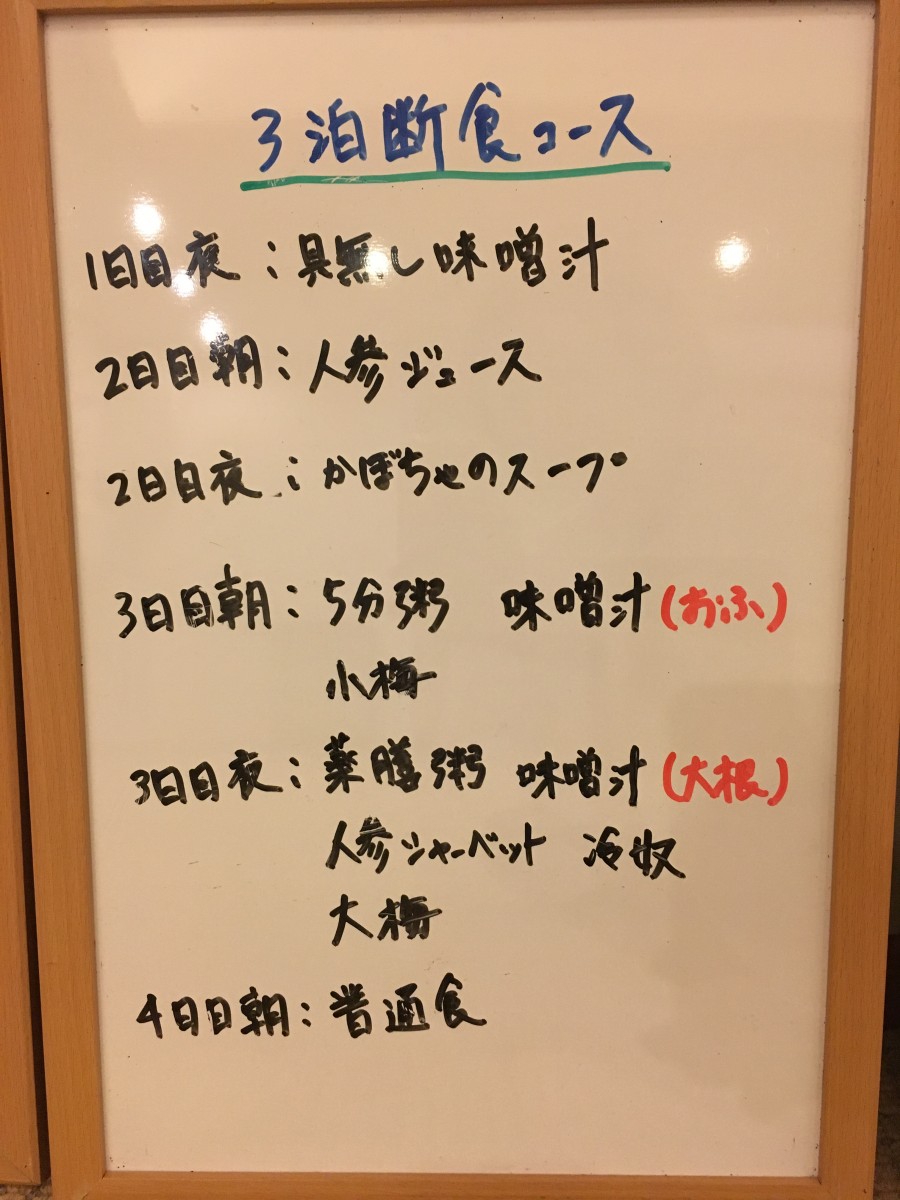 3泊断食コース
1日目夜：具無し味噌汁
2日目朝：人参ジュース
2日目夜：かぼちゃのスープ
3日目朝：5分粥 味噌汁(おふ)
小梅
3日目夜：薬膳粥 味噌汁(大根)
人参シャーベット 冷奴
大梅
4日目朝：普通食